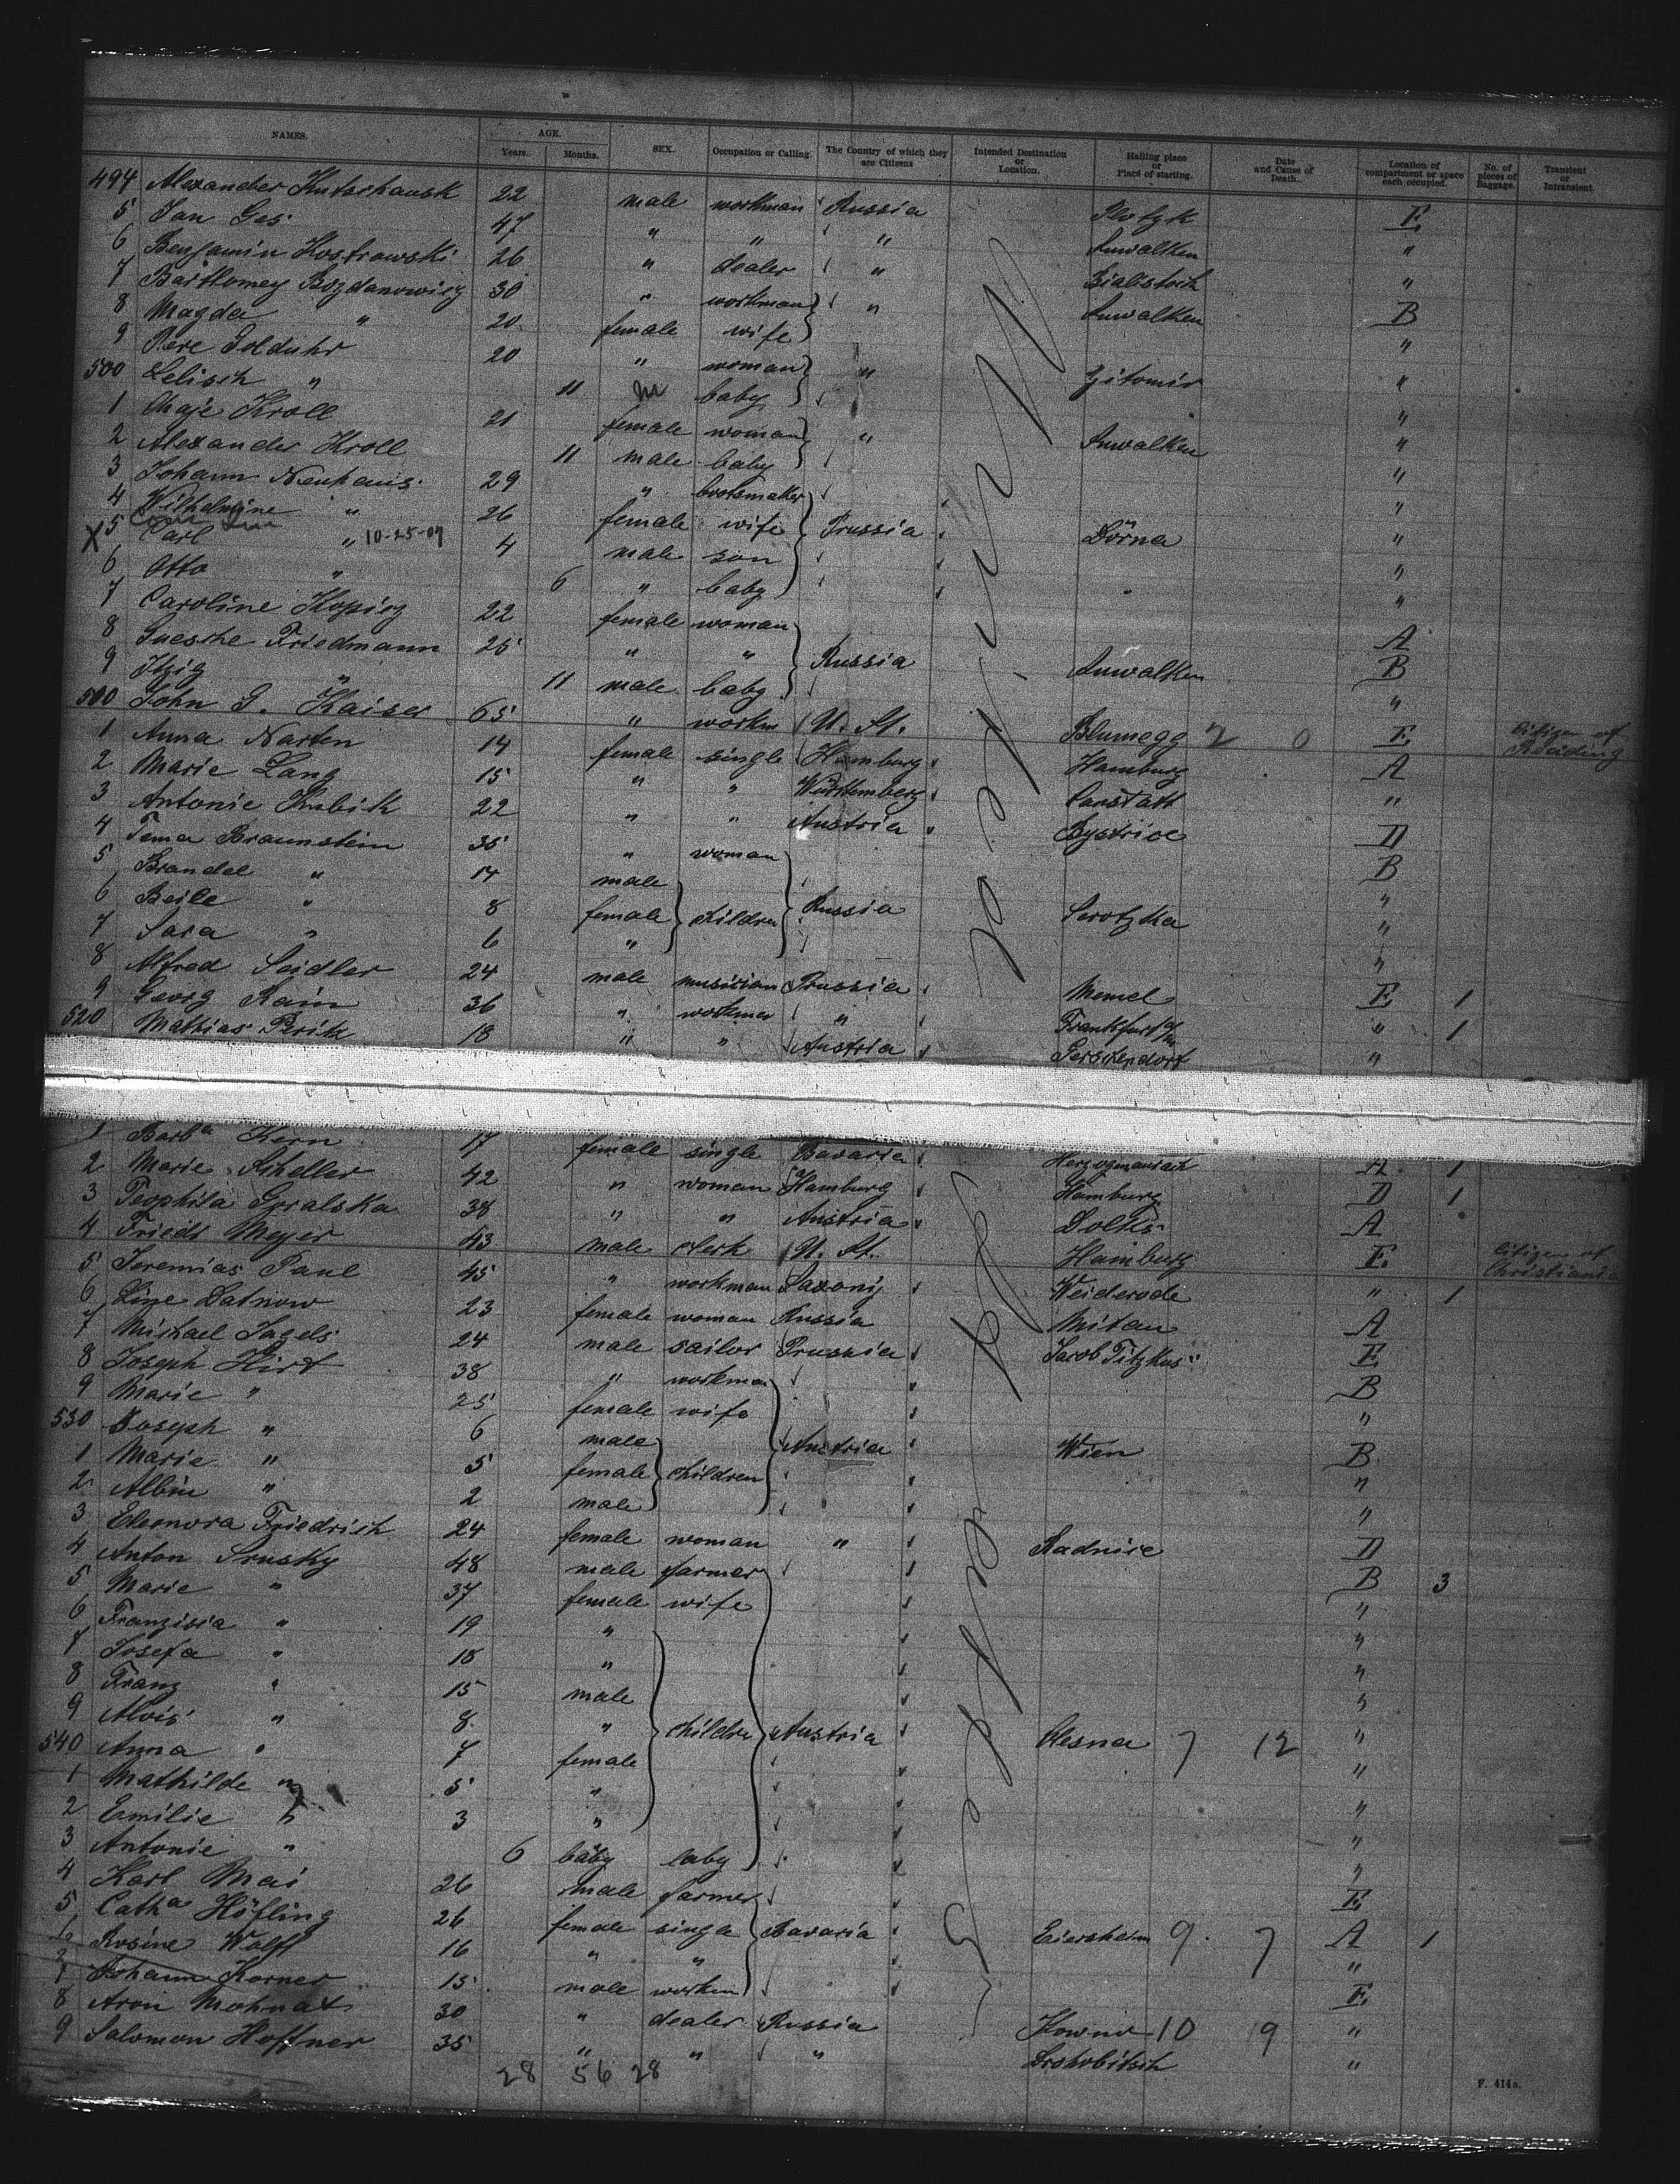 NAMES. AGE. Years. Months. SEX. Occupation or Calling. The Country of which they are Citizens Intended Destination or Location. Hailing place or Place of starting. Date and Cause of Death. Location of compartment or space each occupied. No. of pieces of Baggage. Transient or Intransient.
494 Alexander 22 male workman Russia Plotzk E
5 Jan Ges 47 " " " Suwalken "
6 Benjamin Kostrowski 26 " dealer " Bialistock "
7 Bartlomey Bozdanowicz 30 " workman " Suwalken B
8 Magda " 20 female wife "
9 Pere Golduhr 20 " woman " Zitomir "
500 Lelisch " 11 m baby "
1 Chaje Kroll 21 female woman " Suwalken "
2 Alexander Kroll 11 male baby "
3 Johann Neuhaus 29 " bootsmaker "
4 Wilhelmine " 26 female wife Prussia Dörna "
X 5 Carl " 10-25-09 4 male son "
6 Otto " 6 " baby "
7 Caroline Kopicz 22 female woman A
8 Friedmann 25 " " Russia Suwalken B
9 Itzig " 11 male baby "
500 John G. Kaiser 65 " workm U. St. Blumegg 2 0 E citizen of Reading
1 Anna Narten 14 female single Hamburg Hamburg A
2 Marie Lang 15 " " Württemberg Canstatt "
3 Antonie Kubik 22 " " Austria Bystrice D
4 Tema Braunstein 35 " woman B
5 Brandel " 14 male "
6 Beile " 8 female children Russia Serotzka "
7 Sara " 6 " "
8 Alfred Seidler 24 male musician Prussia Memel E 1
9 Georg Rain 36 " workman " Frankfurt a/m " 1
520 Mathias 18 " " Austria "
1 Barba Kern 17 female single Bavaria A 1
2 Marie Scheller 42 " woman Hamburg Hamburg D 1
3 Teophila Gpralska 38 " " Austria A
4 Friedr Meyer 43 male clerk U. St. Hamburg E citizen of Christiania
5 Jeremias Paul 45 " workman Saxony Weiderode " 1
6 Line Latnow 23 female woman Russia Mitau A
7 Michael Jagels 24 male sailor Prussia E
8 Joseph Hirt 38 " workman B
9 Marie " 25 female wife "
530 Joseph " 6 male Austria Wien B
1 Marie " 5 female children "
2 Albin " 2 male "
3 Eleonora Friedrich 24 female woman " Radnice D
4 Anton Srusky 48 male farmer B 3
5 Marie " 37 female wife "
6 Franzisca " 19 " "
7 Josefa " 18 " "
8 Franz " 15 male "
9 Alois " 8 " children Austria Olesna 7 12 "
540 Anna " 7 female "
1 Mathilde " 5 " "
2 Emilie " 3 " "
3 Antonie " 6 baby baby "
4 Karl Mai 26 male farmer E
5 Catha Höfling 26 female single Bavaria Eiersheim 9 7 A 1
6 Rosine Wolff 16 " " "
7 Johann Korner 15 male workm E
8 Aron Mohnat 30 " dealer Russia Kowno 10 9 "
9 Salomon Hoffner 35 " " " Drohobitsch "
28 56 28
F. 414a.